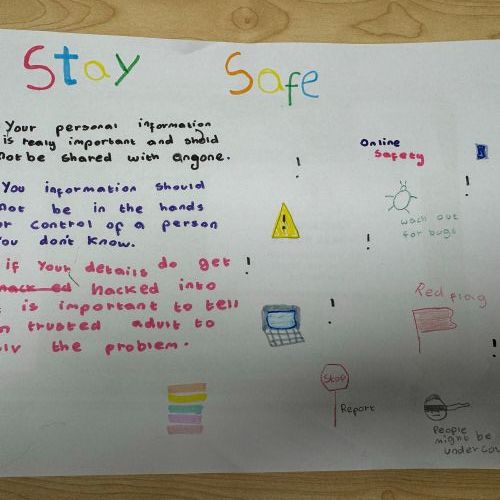 Stay Safe
Your personal information
is realy important and shold
not be shared with angone.
You information should
not be in the hands
or control of a person
you don't know.
if your details do get
hacked into
is important to tell
trusted adult to
the problem.
Online
Safety
!
!
!
!
!
!
!
wach out
for bugs
Red flag
Stop
Report
People
might be
under